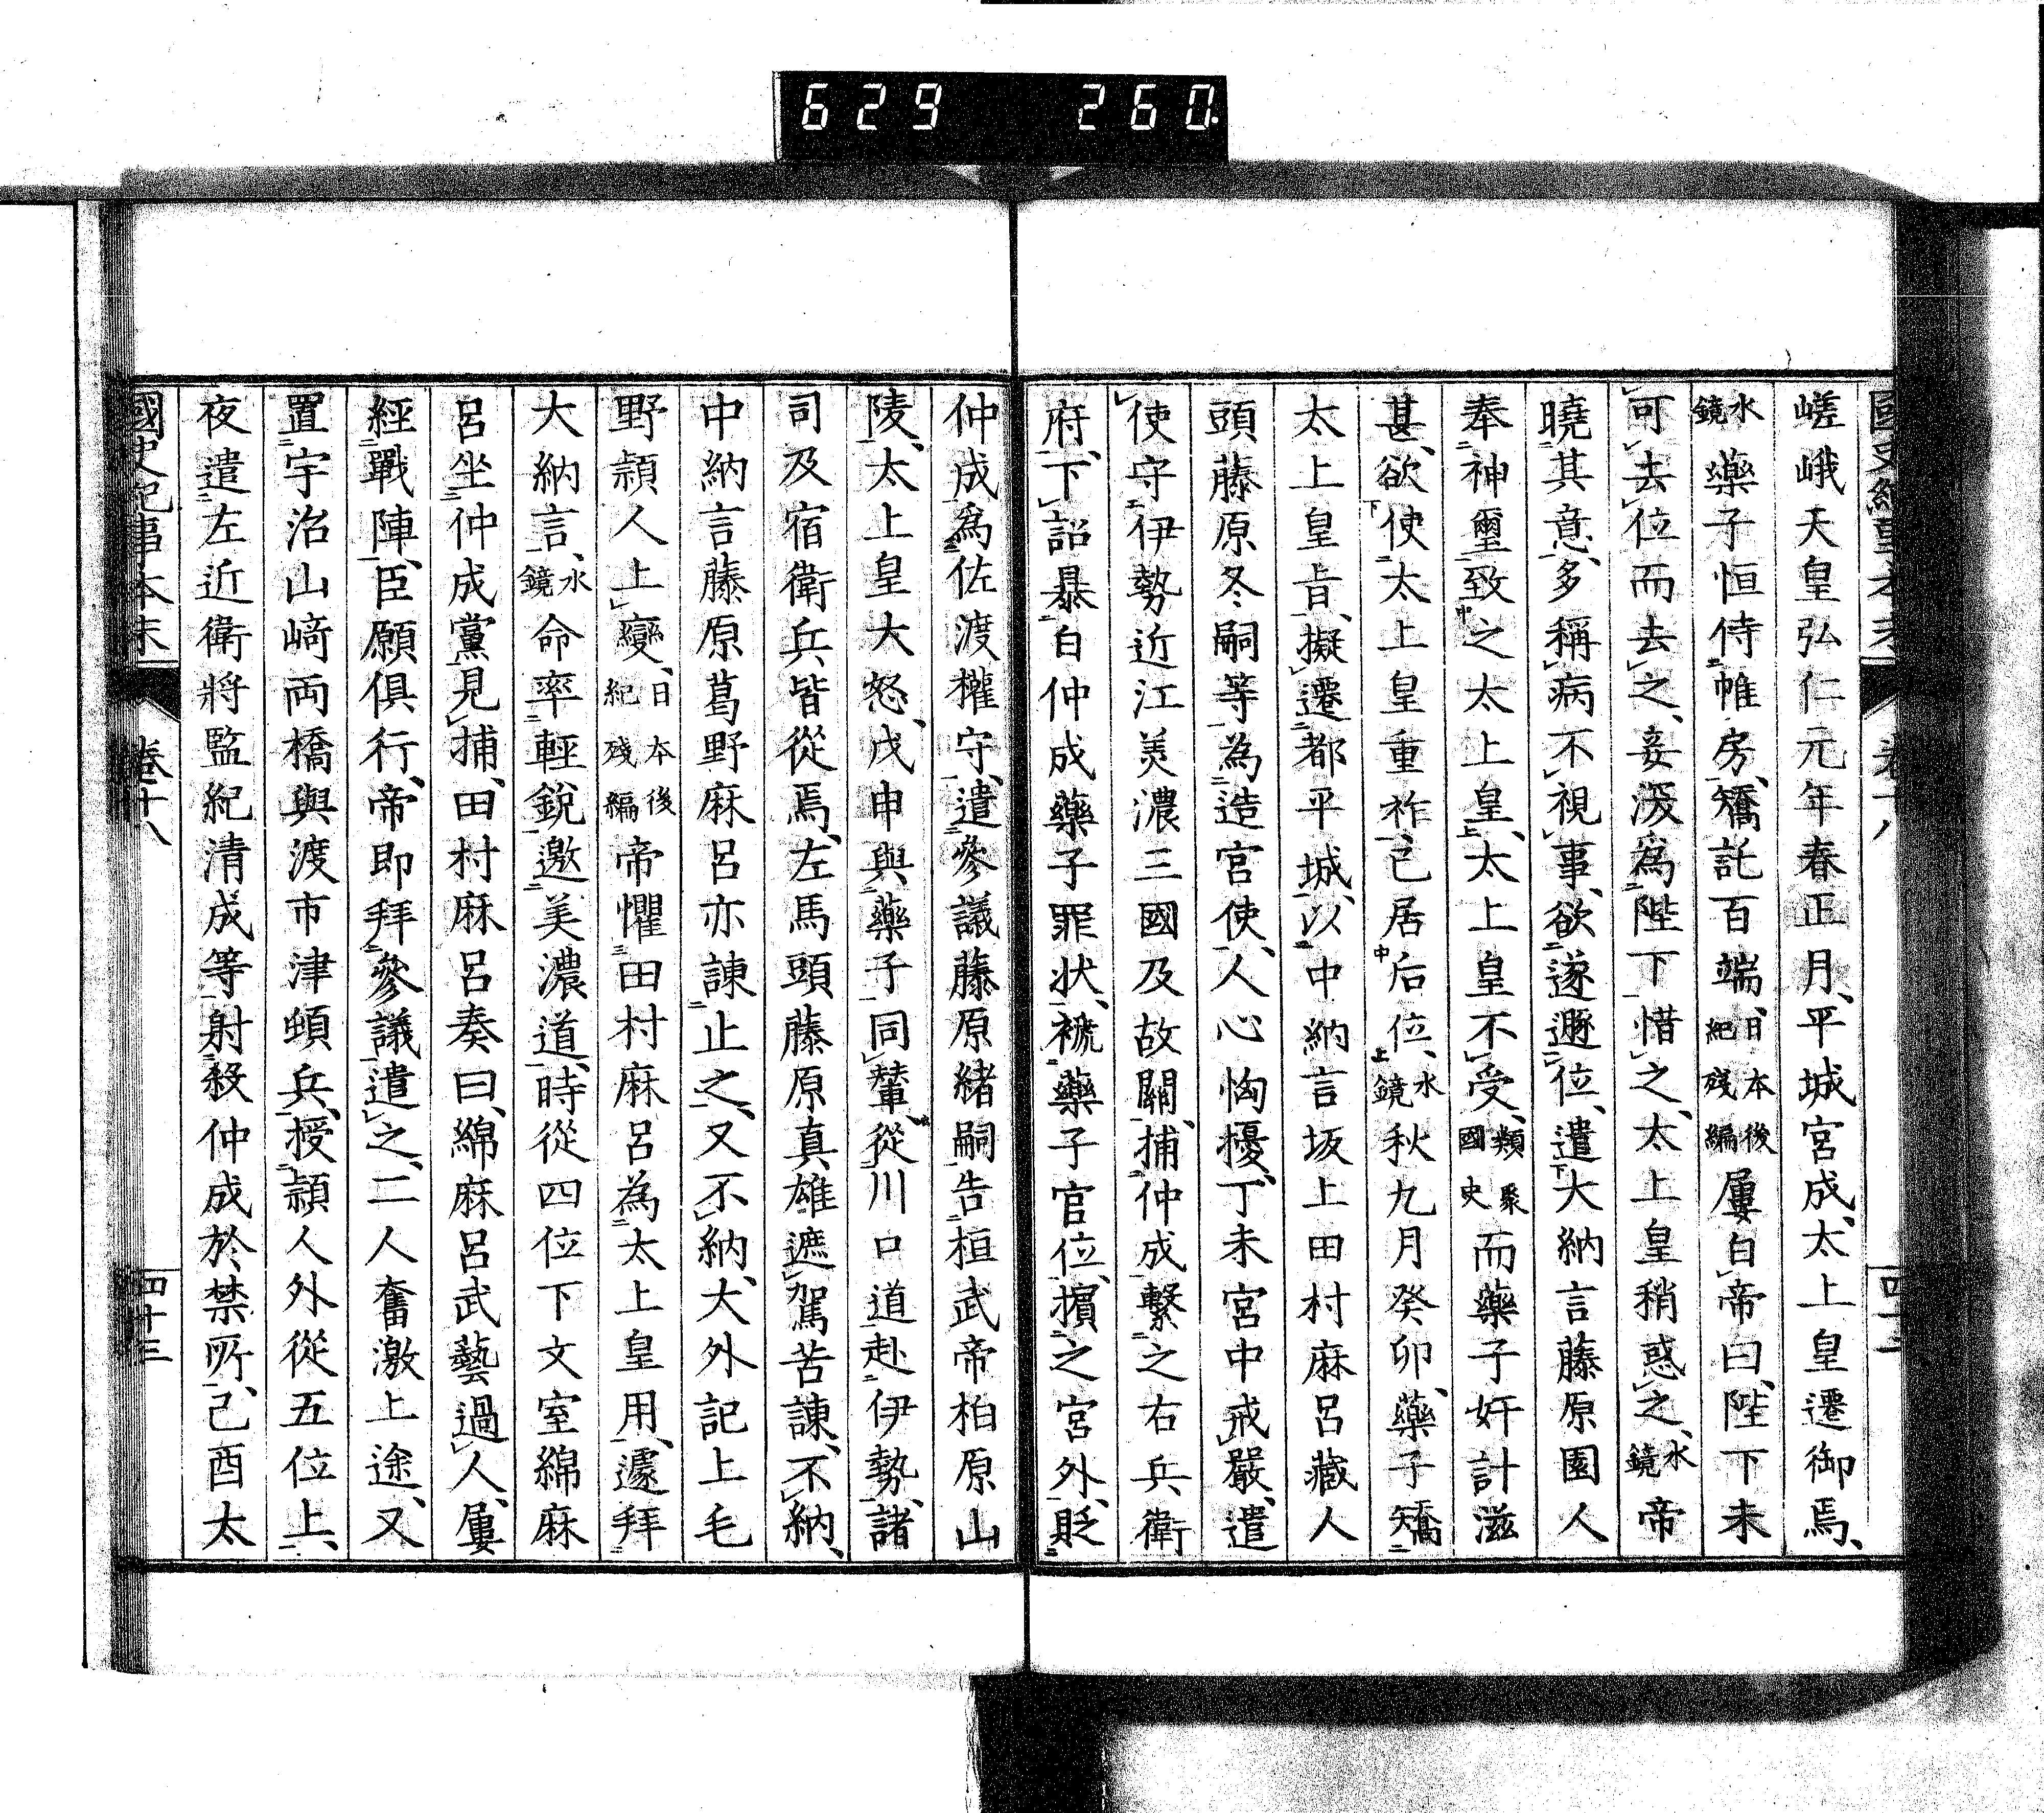 629 260
國史紀事本末 卷十八 四十二
嵯峨天皇弘仁元年春正月、平城宮成、太上皇遷御焉、
水鏡藥子恒侍帷房、矯託百端、日本後紀殘編屢白帝曰、陛下未
可去位而去之、妾深爲陛下惜之、太上皇稍惑之、水鏡帝
曉其意、多稱病不視事、欲遂遜位、遣大納言藤原園人
奉神璽致之太上皇、太上皇不受、類聚國史而藥子奸計滋
甚、欲使太上皇重祚、已居后位、水鏡秋九月癸卯、藥子矯
太上皇旨、擬遷都平城、以中納言坂上田村麻呂藏人
頭藤原冬嗣等為造宮使、人心恟擾、丁未宮中戒嚴、遣
使守伊勢近江美濃三國及故關、捕仲成、繫之右兵衛
府、下詔暴白仲成藥子罪状、褫藥子官位、擯之宮外、貶
仲成爲佐渡權守、遣參議藤原緒嗣告桓武帝柏原山
陵、太上皇大怒、戊申與藥子同輦、從川口道赴伊勢、諸
司及宿衛兵皆從焉、左馬頭藤原真雄遮駕苦諫、不納、
中納言藤原葛野麻呂亦諫止之、又不納、大外記上毛
野頴人上變、日本後紀殘編帝懼田村麻呂為太上皇用、遽拜
大納言、水鏡命率輕銳邀美濃道、時從四位下文室綿麻
呂坐仲成黨見捕、田村麻呂奏曰、綿麻呂武藝過人、屢
經戰陣、臣願俱行、帝即拜參議遣之、二人奮激上途、又
置宇治山﨑両橋與渡市津頓兵、授頴人外從五位上、
夜遣左近衛將監紀清成等射殺仲成於禁所、己酉太
國史紀事本末 卷十八 四十三